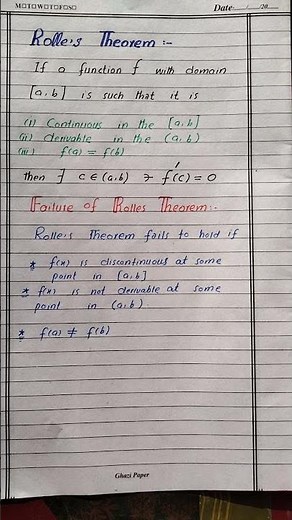 M□TOW□T□F□S□
Date: / /20
Rolle's Theorem :-
If a function f with domain
[a,b] is such that it is
(i) Continuous in the [a,b]
(ii) derivable in the (a,b)
(iii) f(a) = f(b)
then ∃ c ∈ (a,b) ∋ f'(c) = 0
Failure of Rolles Theorem:-
Rolle's Theorem fails to hold if
* f(x) is discontinuous at some
point in [a,b]
* f(x) is not derivable at some
point in (a,b)
* f(a) ≠ f(b)
Ghazi Paper